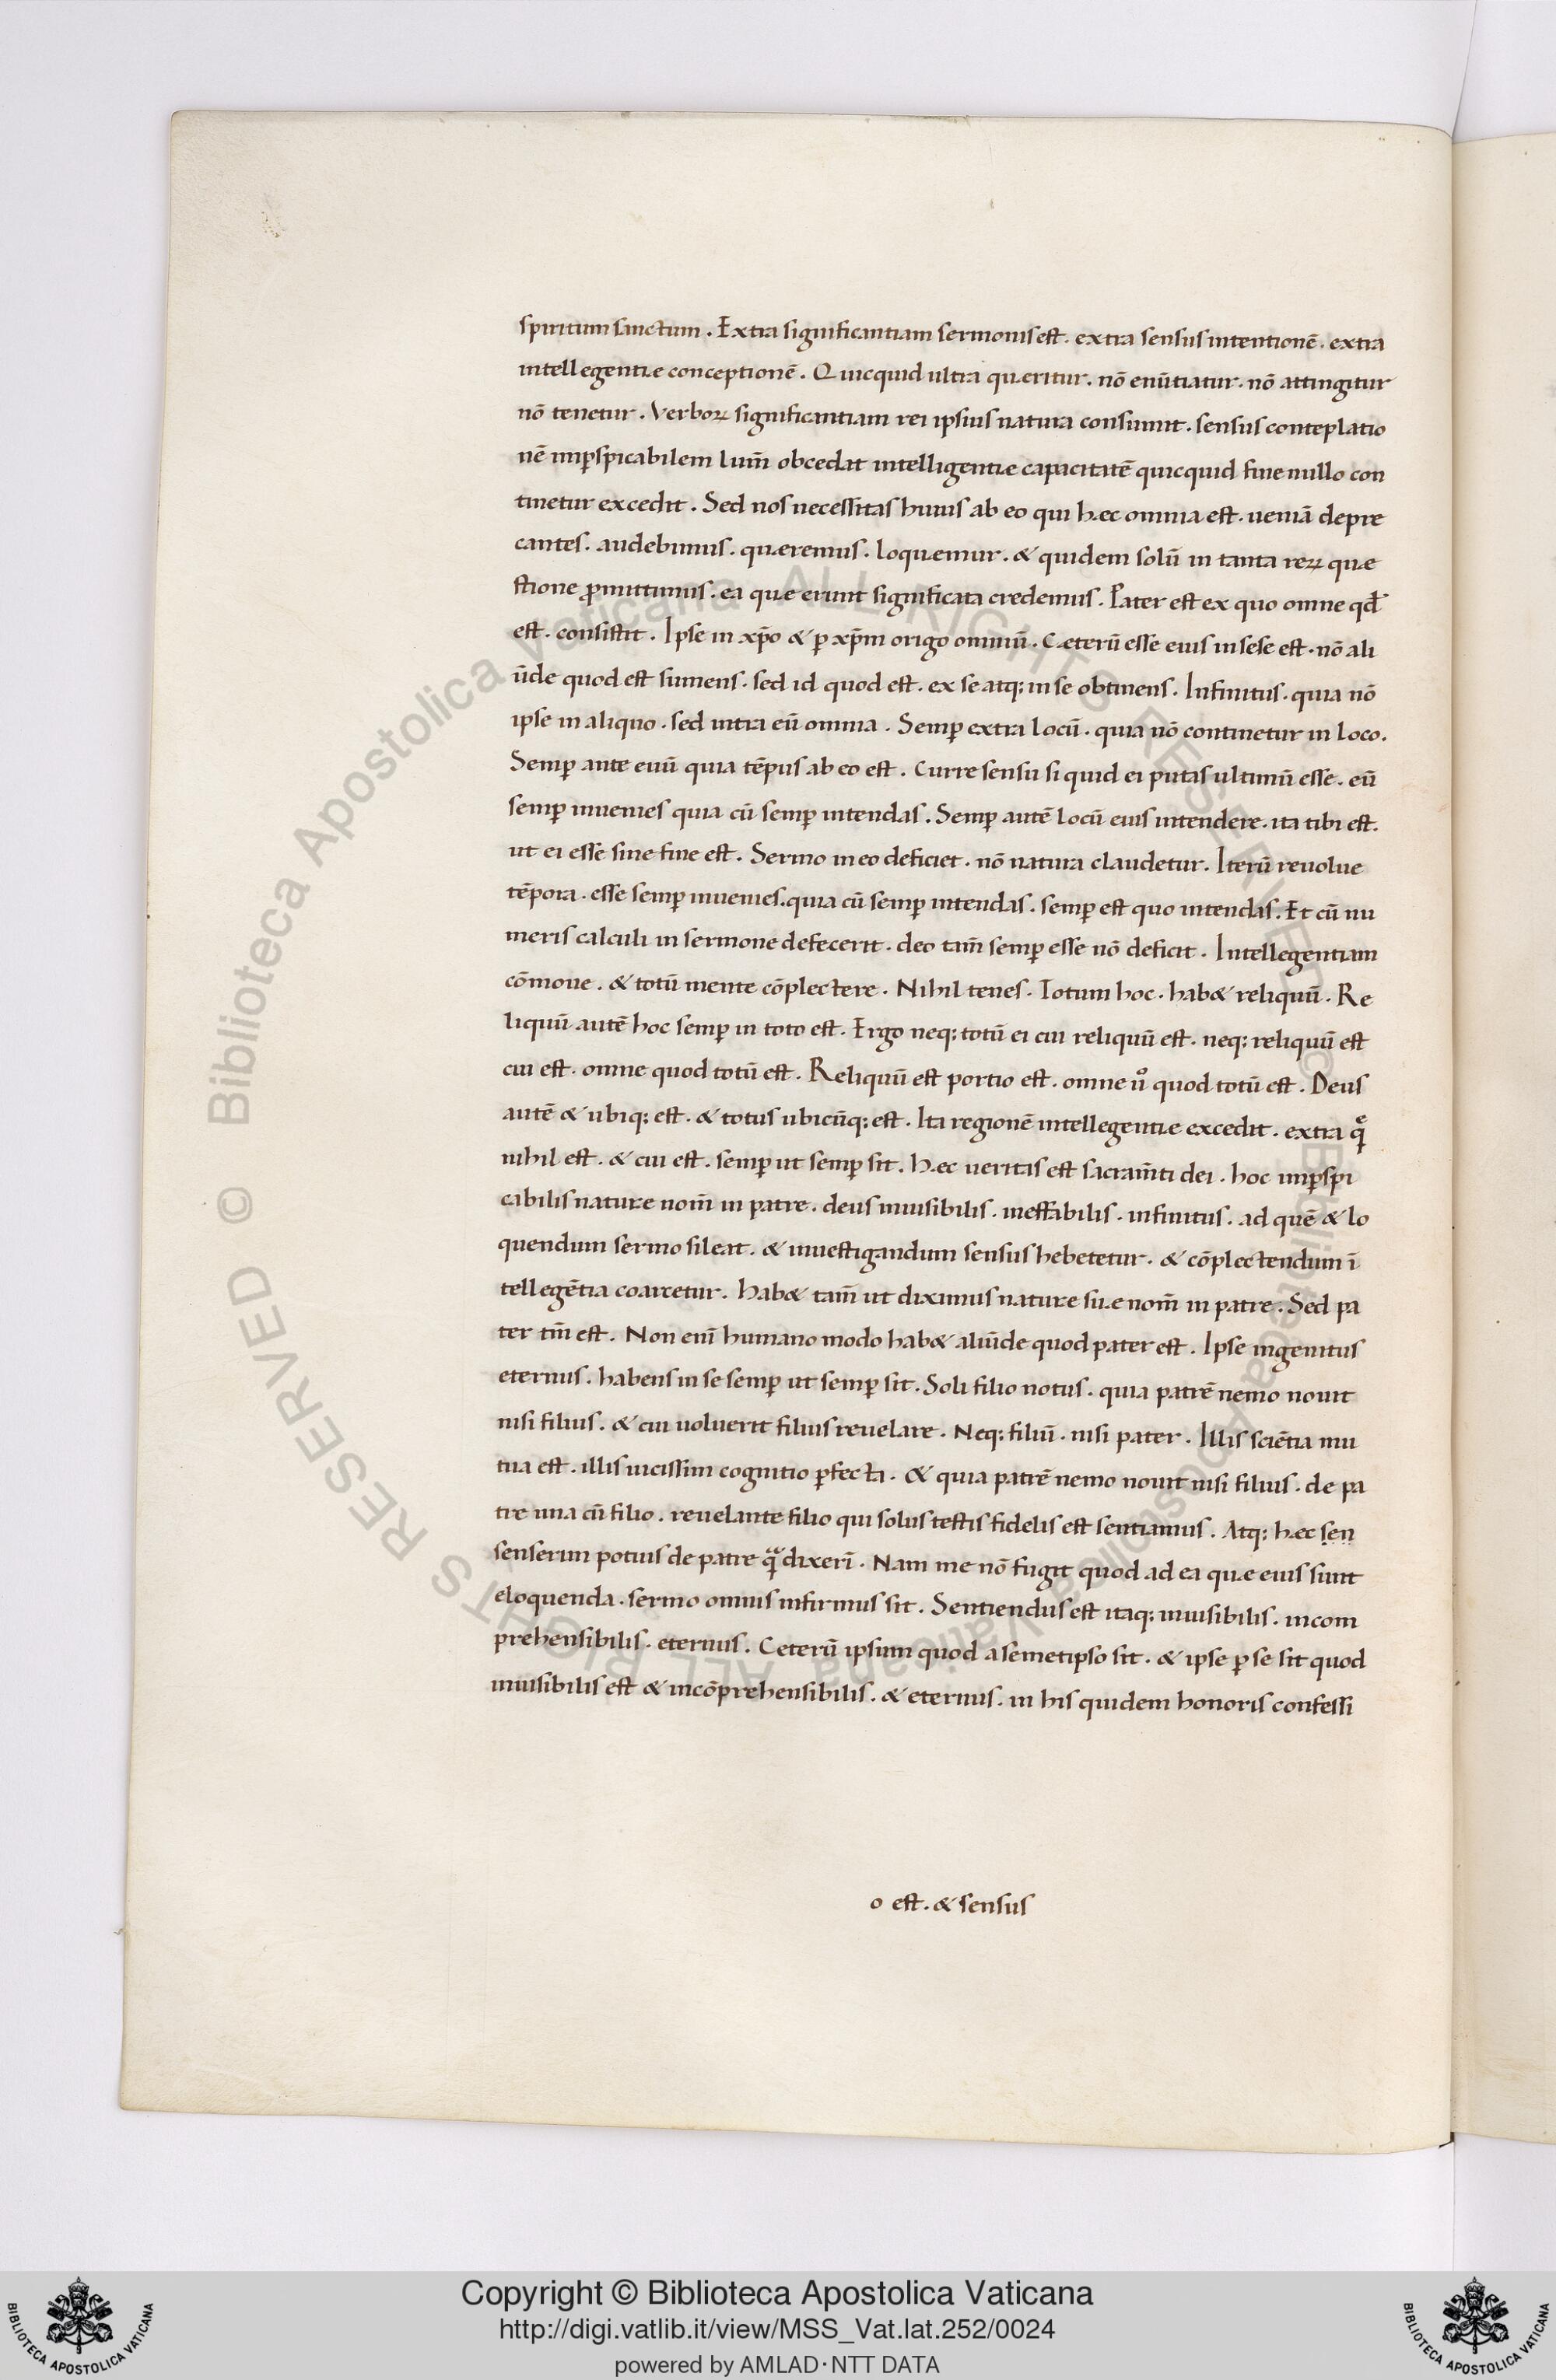 spiritum sanctum . Extra significantiam sermonis est . extra sensus intentionē . extra
intellegentiæ conceptionē . Quicquid ultra quæritur . nō enūtiatur . nō attingitur
nō tenetur . Verboꝝ significantiam rei ipsius natura consumit . sensus conteplatio
nē imꝑspicabilem lum̄ obcedat intelligentiæ capacitatē quicquid fine nullo con
tinetur excedit . Sed nos necessitas huius ab eo qui hæc omnia est . ueniā depre
cantes . audebimus . quæremus . loquæmur . & quidem solū in tanta reꝝ quæ
stione ꝓmittimus . ea quæ erunt significata credemus . Pater est ex quo omne qđ
est . consistit . Ipse in xp̄o & ꝑ xp̄m origo omniū . Cæterū esse eius in sese est . nō ali
ūde quod est sumens . sed id quod est . ex se atq; in se obtinens . Infinitus . quia nō
ipse in aliquo . sed intra eū omnia . Semꝑ extra locū . quia nō continetur in loco .
Semꝑ ante euū quia tēpus ab eo est . Curre sensu si quid ei putas ultimū esse . eū
semꝑ inuenies quia cū semꝑ intendas . Semꝑ autē locū eius intendere . ita tibi est .
ut ei esse sine fine est . Sermo in eo deficiet . nō natura claudetur . Iterū reuolue
tēpora . esse semꝑ inuenies . quia cū semꝑ intendas . semꝑ est quo intendas . Et cū nu
meris calculi in sermone defecerit . deo tam̄ semꝑ esse nō deficit . Intellegentiam
cōmoue . & totū mente cōplectere . Nihil tenes . Totum hoc . hab& reliquū . Re
liquū autē hoc semꝑ in toto est . Ergo neq; totū ei cui reliquū est . neq; reliquū est
cui est . omne quod totū est . Reliquū est portio est . omne uͦ quod totū est . Deus
autē & ubiq; est . & totus ubicūq; est . Ita regionē intellegentiæ excedit . extra qͤ
nihil est . & cui est . semꝑ ut semꝑ sit . hæc ueritas est sacram̄ti dei . hoc imꝑspi
cabilis naturæ nom̄ in patre . deus inuisibilis . ineffabilis . infinitus . ad quē & lo
quendum sermo sileat . & inuestigandum sensus hebetetur . & cōplectendum ī
tellegētia coarcetur . hab& tam̄ ut diximus naturæ suæ nom̄ in patre . Sed pa
ter tm̄ est . Non enī humano modo hab& aliūde quod pater est . Ipse ingenitus
eternus . habens in se semꝑ ut semꝑ sit . Soli filio notus . quia patrē nemo nouit
nisi filius . & cui uoluerit filius reuelare . Neq; filiū . nisi pater . Illis sciētia mu
tua est . illis uicissim cognitio ꝑfecta . & quia patrē nemo nouit nisi filius . de pa
tre una cū filio . reuelante filio qui solus testis fidelis est sentiamus . Atq; hæc sen
senserim potius de patre qᷓ dixerī . Nam me nō fugit quod ad ea quæ eius sunt
eloquenda . sermo omnis infirmus sit . Sentiendus est itaq; inuisibilis . incom
prehensibilis . eternus . Ceterū ipsum quod a semetipso sit . & ipse ꝑ se sit quod
inuisibilis est & incōprehensibilis . & eternus . in his quidem honoris confessi
o est . & sensus
© Biblioteca Apostolica Vaticana ALL RIGHTS RESERVED © Biblioteca Apostolica Vaticana ALL RIGHTS RESERVED
Copyright © Biblioteca Apostolica Vaticana
http://digi.vatlib.it/view/MSS_Vat.lat.252/0024
powered by AMLAD·NTT DATA
BIBLIOTECA APOSTOLICA VATICANA
BIBLIOTECA APOSTOLICA VATICANA